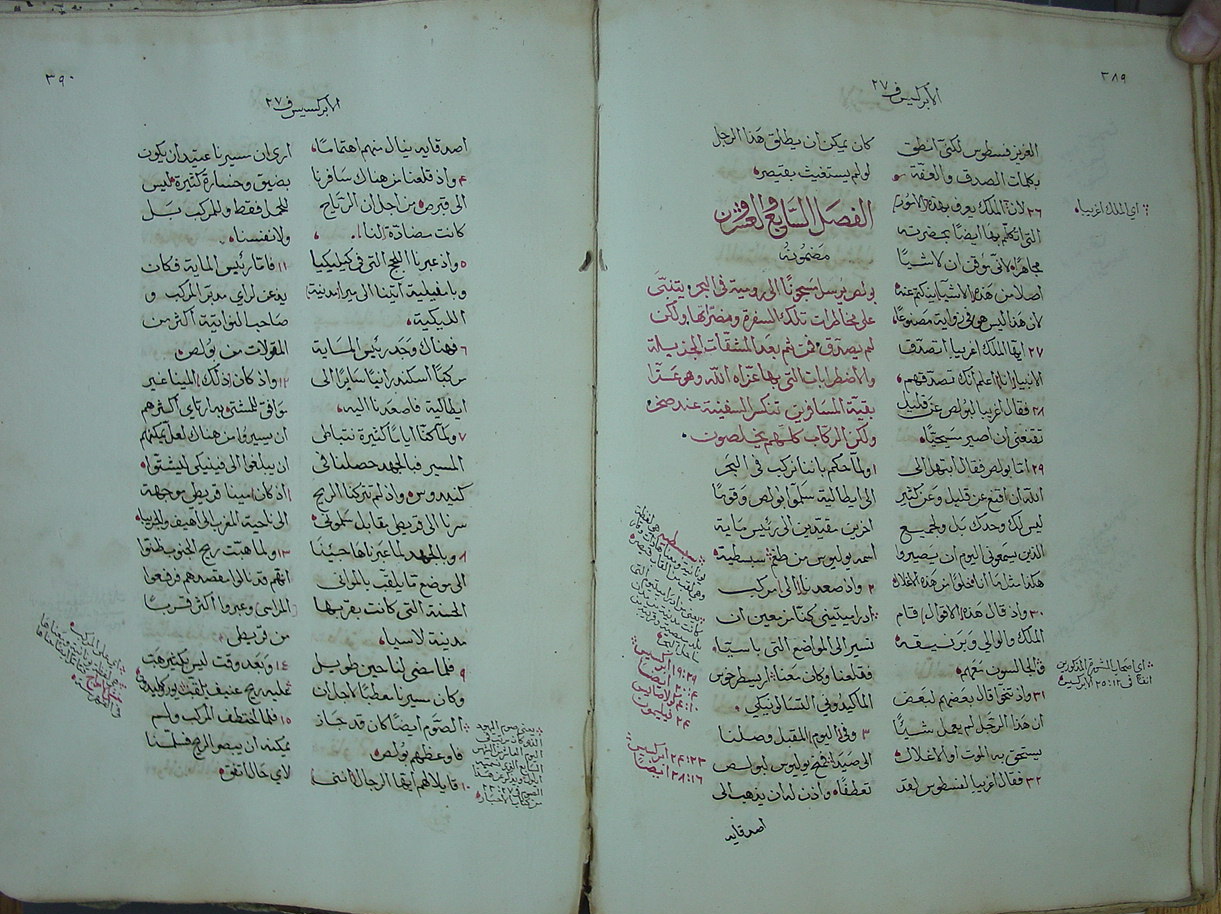 ٣٨٩
الأبركسيس ف ٢٧
العزيز فسطوس لكنّي انطق
بكلمات الصدق والعفّة
٢٦ لانّ الملك يعرف بهذه الامور
التي اتكلّم بها ايضًا بحضرته
مجاهرًا لاني موقن ان لا شيئًا
اصلا من هذه الاشيا ينكتم عنه
لان هذا ليس هو في زواية مصنوعًا
٢٧ ايها الملك اغريبا اتصدّق
الانبيا وانا اعلم انّك تصدقهم
٢٨ فقال اغريبا لبولص عن قليل
تقنعني ان اصير مسيحيًّا
٢٩ امّا بولص فقال ابتهل الى
الله ان اقنع عن قليل وعن كثير
ليس لك وحدك بل ولجميع
الذين يسمعوني اليوم ان يصيروا
هكذا مثل ما انا ما خلوًا من هذه الاغلال
٣٠ واذ قال هذه الاقوال قام
الملك والوالي وبرنيقه
والجالسون معهم
٣١ واذ تنحّوا قال بعضهم لبعض
ان هذا الرجل لم يعمل شيئًا
يستحق به الموت او الاغلال
٣٢ فقال اغريبا لفسطوس لقد
اي الملك اغريبا
اي اصحاب الشورى المذكورين
انفًا في ١٢:٢٥ الابركسيس
كان يمكن ان يطلق هذا الرجل
لو لم يستغيث بقيصر
الفصل السابع والعشرون
مضمونه
بولص يرسل مسجونًا الى رومية في البحر يتنبّى
على مخاطرات تلك السفرة ومضراتها ولكن
لم يصدق فمن ثم بعد المشقات الجزيلة
والاضطرابات التي بها عزاه الله وهو عزّا
بقية المسافرين تنكسر السفينة عند صخر
ولكن الركّاب كلّهم يخلصون
١ ولما حكم باننا نركب في البحر
الى ايطالية سلّموا بولص وقومًا
اخرين مقيدين الى رئيس ماية
اسمه يوليوس من طغمة سبسطية
٢ واذ صعدنا الى مركب
ادراميتيني كنّا مزمعين ان
نسير الى المواضع التي باسيا
فقلعنا وكان معنا ارسطرخوس
الماكيدوني التسالونيكي
٣ وفي اليوم المقبل وصلنا
الى صيدا فسمح يوليوس لبولص
تعطفًا واذن له ان يذهب الى
اصدقايه
٢٩:١٩ ابركسيس
٢:٢٠ ايضًا
١٠:٤ قولاصايس
٢٤ فيليمون
٢٣:٢٤ ابركسيس
١٦:٢٨ ايضًا
٣٩٠
الأبركسيس ف ٢٧
اصدقايه ينال منهم اهتمامًا
٤ واذ قلعنا من هناك سافرنا
الى قبرس من اجل ان الرياح
كانت مضادّة لنا
٥ واذ عبرنا اللجج التي في كيليكيا
وبامفيلية اتينا الى ميرا مدينة
الليكية
٦ فهناك وجد رئيس الماية
مركبًا اسكندرانيًا سايرًا الى
ايطالية فاصعدنا اليه
٧ ولما كنّا ايامًا كثيرة نتباطى
المسير فبالجهد حصلنا في
كنيدوس واذ لم تتركنا الريح
سرنا الى قريطي بمقابل سلموني
٨ وبالجهد لما عبرناها جينا
الى موضع ما يلقب بالمواني
الحسنة التي كانت بقربها
مدينة لاسيا
٩ فلما مضى لنا حين طويل
وكان مسيرنا معطبًا لاجل ان
الصوم ايضًا كان قد جاز
فاوعظهم بولص
١٠ قايلا لهم ايها الرجال انني
ارى ان مسيرنا عتيد ان يكون
بضيق وخسارة كثيرة ليس
للحمل فقط وللمركب بل
ولانفسنا
١١ فاما رئيس الماية فكان
يذعن لراي مدبّر المركب و
صاحب النواتية اكثر من
المقولات من بولص
١٢ واذ كان ذلك المينا غير
موافق للمشتى بها رتاى اكثرهم
ان يسيروا من هناك لعلّ يمكنهم
ان يبلغوا الى فينيكي ليشتوا
اذ كان مينا قريطي موجهة
الى ناحية المغرب الى الهيف والجربيا
١٣ ولما هبّت ريح الجنوب ظنوا
انهم قدنالوا مقصدهم فرفعوا
المراسي وعبروا اكثر قربًا
من قريطي
١٤ وبعد وقت ليس بكثير هبّت
عليه ريح عنيف يلقب اوركليدن
١٥ فلما اختطف المركب ولم
يمكنه ان يصدّ الريح فسلّمنا
لاي حال اتفق